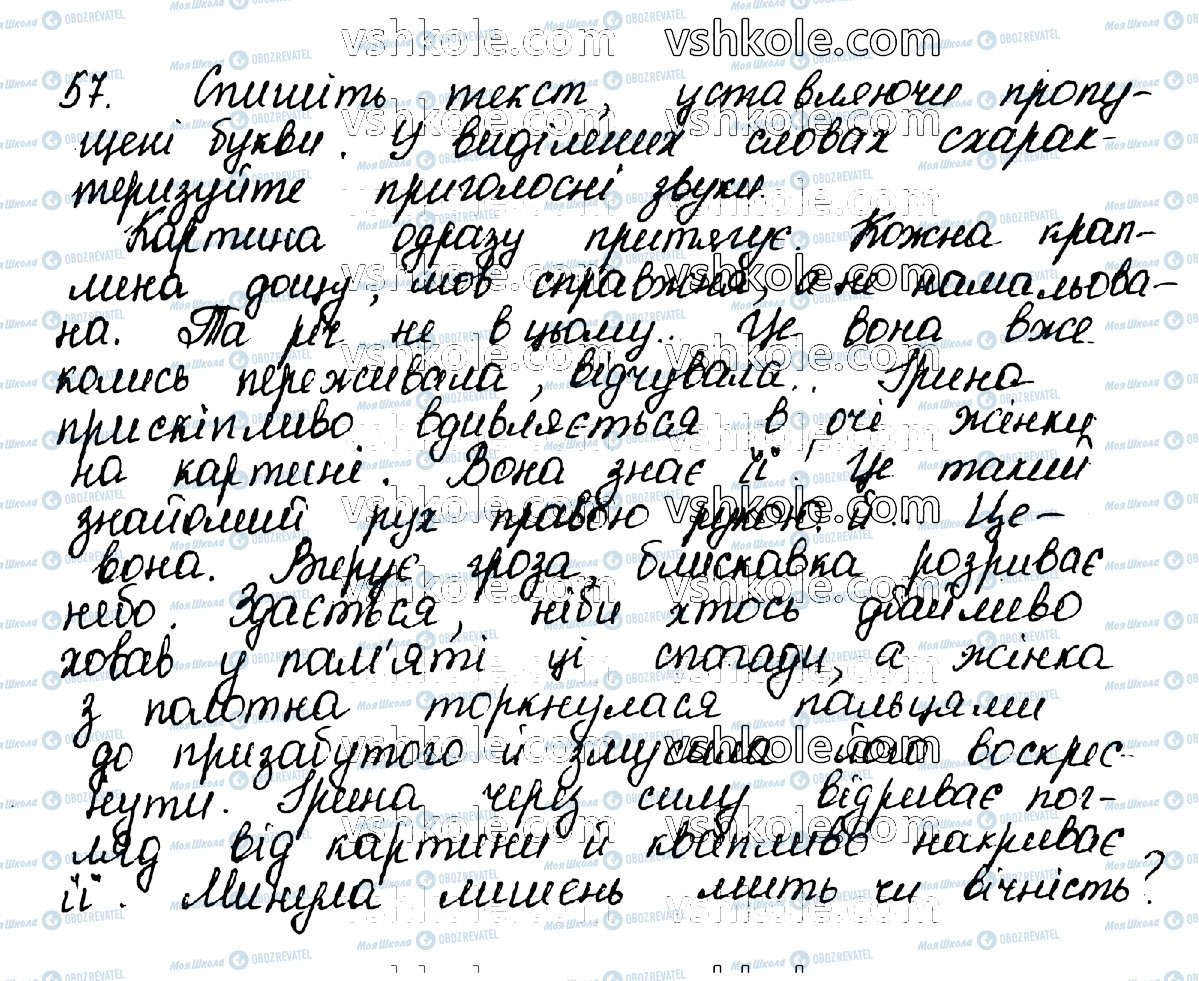 57. Спишіть текст, уставляючи пропу-
щені букви. У виділених словах схарак-
теризуйте приголосні звуки.
Картина одразу притягує. Кожна крап-
лина дощу, мов справжня, а не намальова-
на. Та річ не в цьому.. Це вона вже
колись переживала, відчувала.. Ірина
прискіпливо вдивляється в очі жінки
на картині. Вона знає її. Це такий
знайомий рух правою рукою. Й.. Це-
вона. Вирує гроза, блискавка розриває
небо. Здається, ніби хтось дбайливо
ховав у пам'яті ці спогади, а жінка
з полотна торкнулася пальцями
до призабутого й змусила його воскрес-
нути. Ірина через силу відриває пог-
ляд від картини й квапливо накриває
її. Минула лишень мить чи вічність?